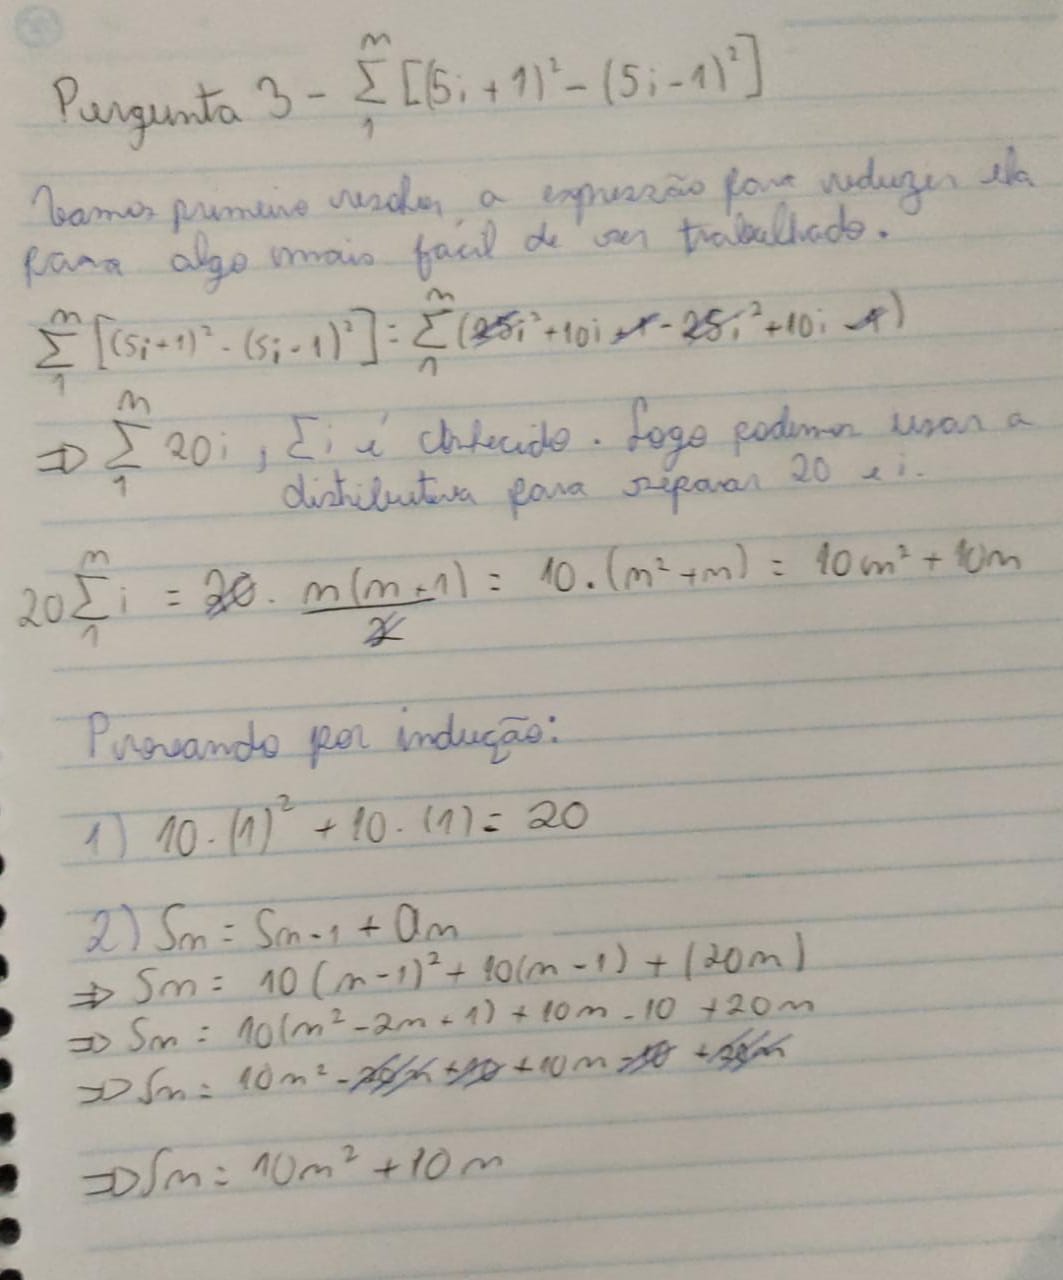 Pergunta 3 - m Σ 1 [(5i + 1)² - (5i - 1)²]
Vamos primeiro resolver a expressão para reduzir ela
para algo mais fácil de ser trabalhado.
m Σ 1 [(5i+1)² - (5i-1)²] = m Σ 1 (25i² + 10i + 1 - 25i² + 10i - 1)
⇒ m Σ 1 20i, Σi é conhecido. Logo podemos usar a
distributiva para separar 20 e i.
20 m Σ 1 i = 20 · m(m+1)/2 = 10 · (m² + m) = 10m² + 10m
Provando por indução:
1) 10 · (1)² + 10 · (1) = 20
2) Sm = Sm-1 + am
⇒ Sm = 10(m-1)² + 10(m-1) + (20m)
⇒ Sm = 10(m² - 2m + 1) + 10m - 10 + 20m
⇒ Sm = 10m² - 20m + 10 + 10m - 10 + 20m
⇒ Sm = 10m² + 10m